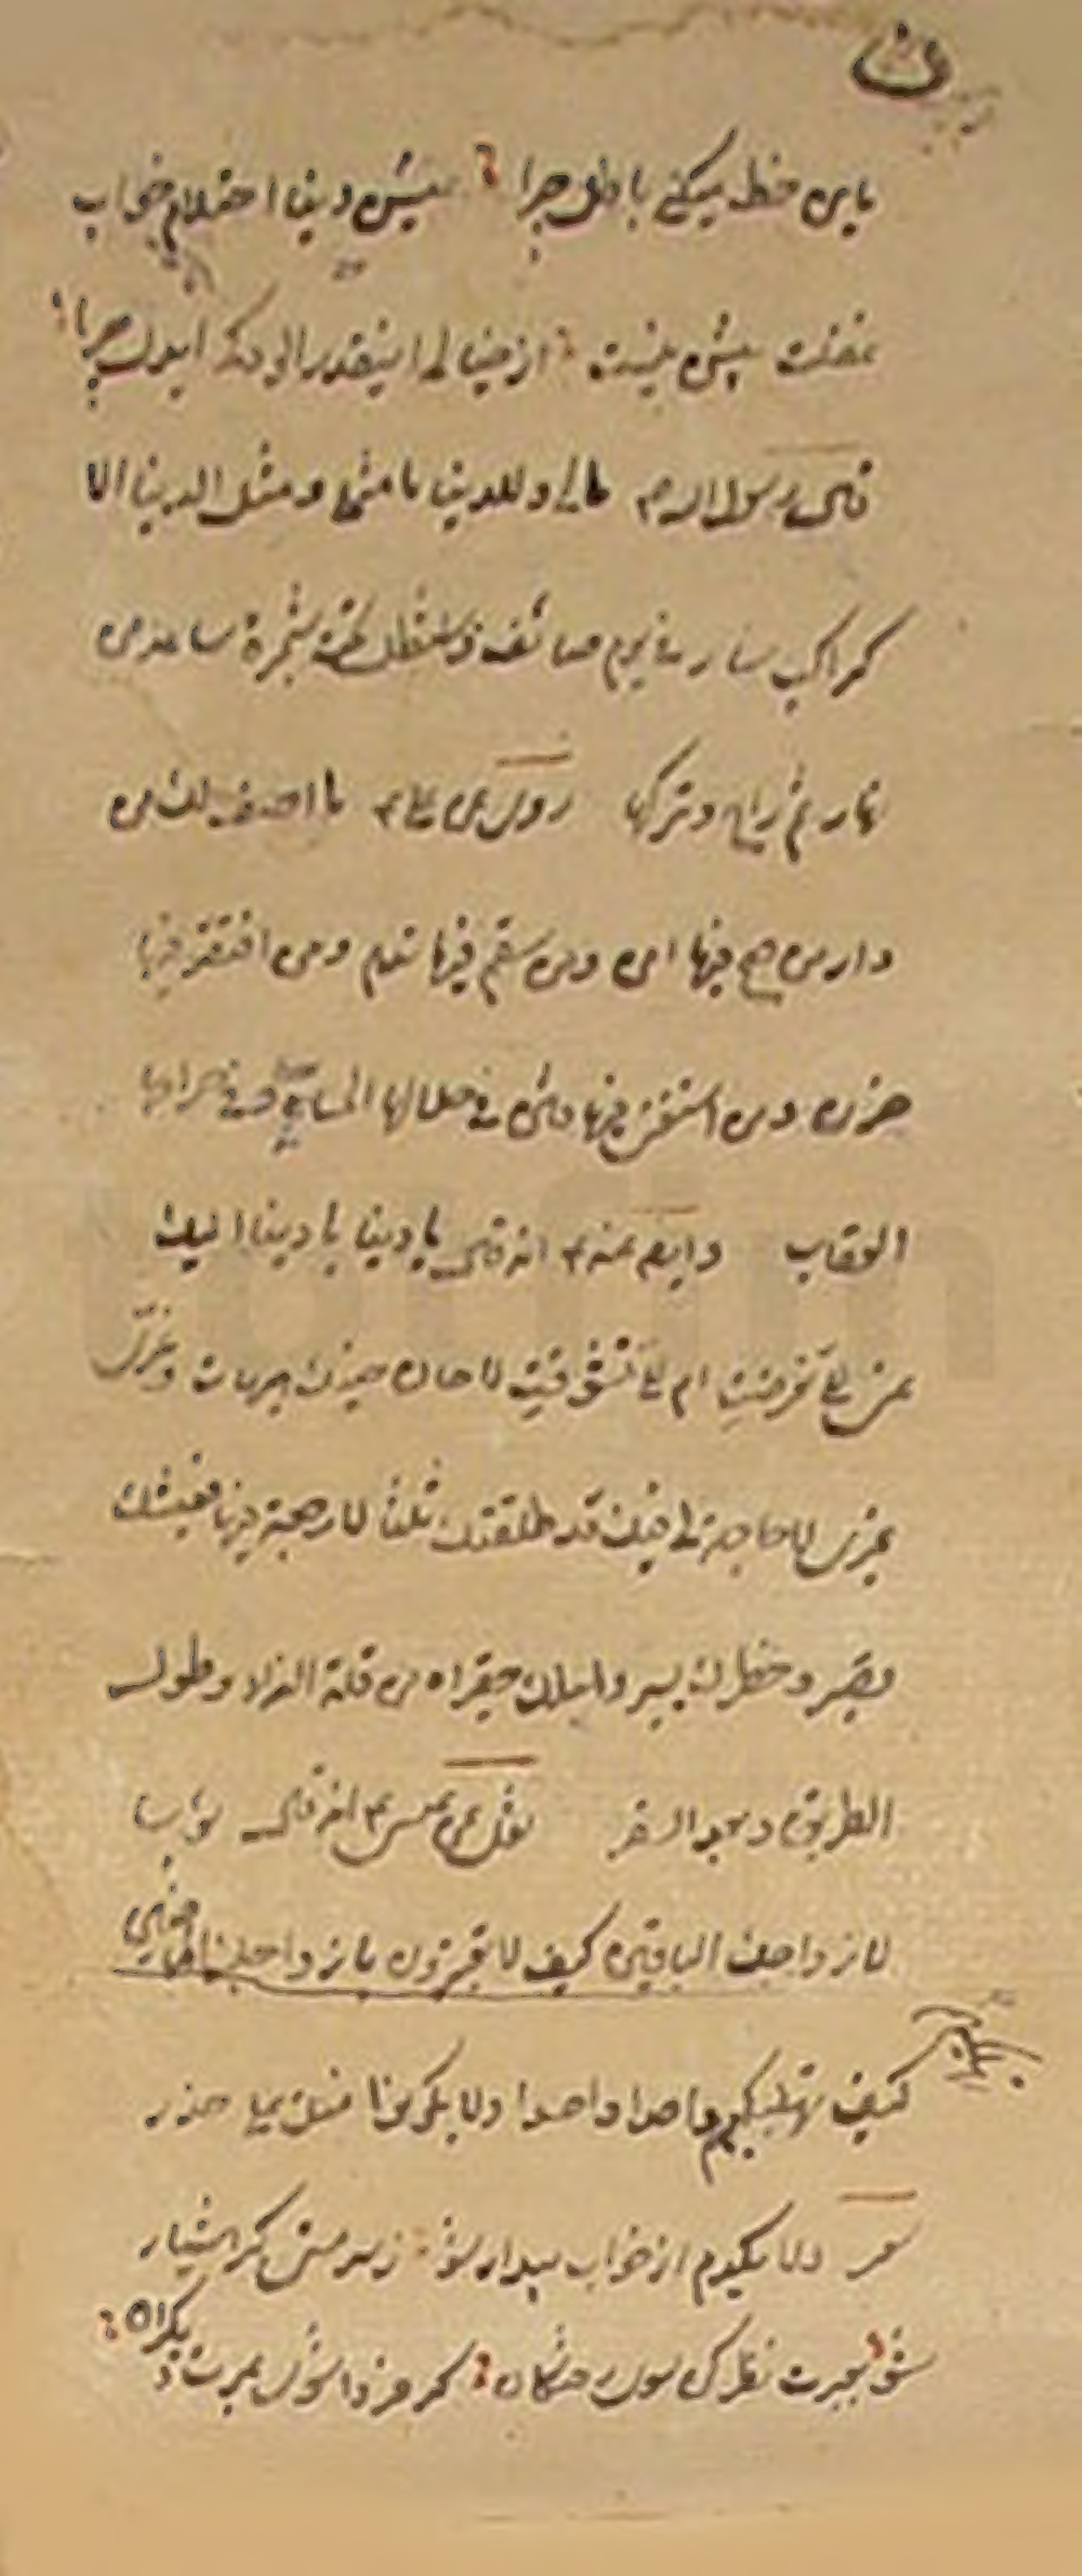 باین حظ میکنی با دل چرا عیش دنیا احتلام خواب
غفلت بیش نیست از خیالی اینقدر الودکی ایدل چرا
قال رسول الله ص مالی وللدنیا مامثلی ومثل الدنیا الا
کراکب سار فی یوم صائف فاستظل تحت شجرة ساعة من
نهار ثم راح وترکها روی عن علی ع ما اصف لک من
دار من صح فیها امن ومن سقم فیها ندم ومن افتقر فیها
حزن ومن استغنی فیها فتن فی حلالها الحساب وفی حرامها
العقاب وایضا عنه ع انه قال یا دنیا یا دنیا الیک
عنی الی تعرضت ام الی تشوقت لا حان حینک هیهات وغری
غیری لا حاجة لی فیک قد طلقتک ثلثا لا رجعة فیها فعیشک
قصیر وخطرک یسیر واملک حقیر اه من قلة الزاد وطول
الطریق وبعد السفر نقل عن عیسی ع انه قال
لازواجک الباقین کیف لا یعتبرون بازواجک الماضین
کیف تهلکیهم واحدا واحدا ولا یکونوا منک علی حذر
شعر دلا یکدم از خواب بیدار شو ز سرمستی کبر هشیار
شو بعبرت نظر کن سوی رفتکان که فردا شوی عبرت دیکران